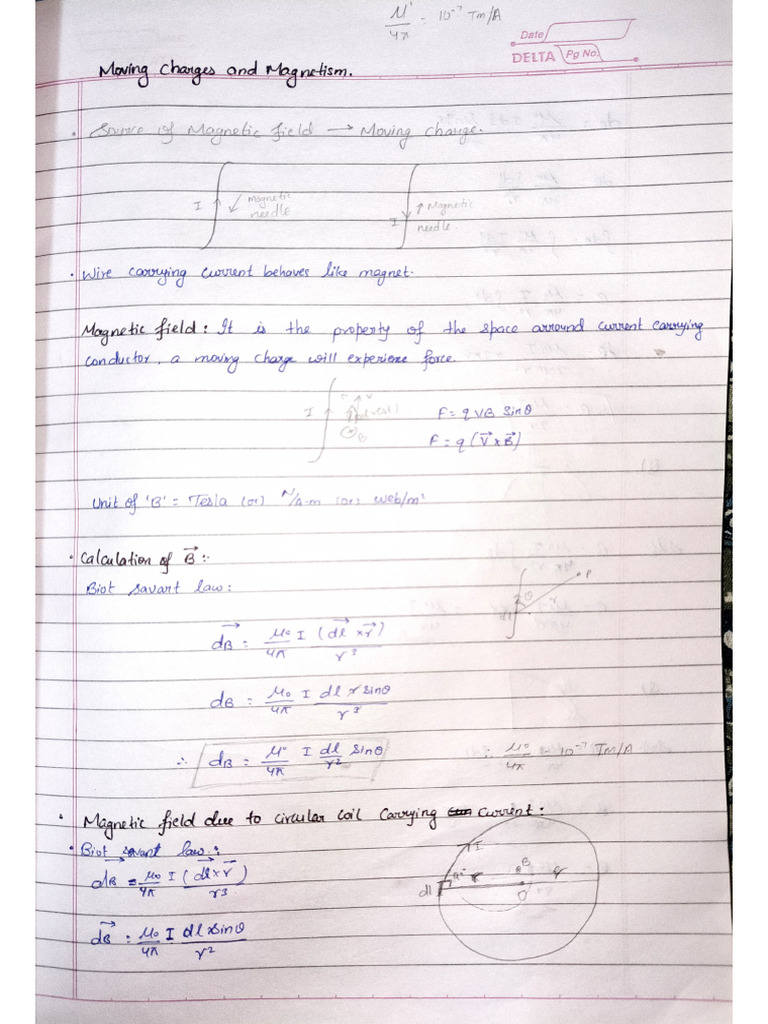 μ°/4π = 10⁻⁷ Tm/A
Date
DELTA Pg No.
Moving Charges and Magnetism.
• Source of Magnetic field → Moving charge.
I ↙ magnetic needle
I ↑ Magnetic needle
• Wire carrying current behaves like magnet.
Magnetic field : It is the property of the space arround current carrying
conductor, a moving charge will experience force.
I
B
F = qVB Sinθ
F = q (V⃗ × B⃗)
Unit of 'B' = Tesla (or) N/A-m (or) web/m²
• Calculation of B⃗ :-
Biot savart law :
P
θ
r
dl
dB⃗ = μ₀/4π I (dl⃗ × r⃗)/r³
dB = μ₀/4π I dl r sinθ/r³
∴ dB = μ°/4π I dl/r² sinθ
∵ μ₀/4π = 10⁻⁷ Tm/A
• Magnetic field due to circular coil Carrying Current :
• Biot savart law :
I
B
dl
O
dB⃗ = μ₀/4π I (dl⃗ × r⃗)/r³
dB⃗ = μ₀/4π I dl sinθ/r²